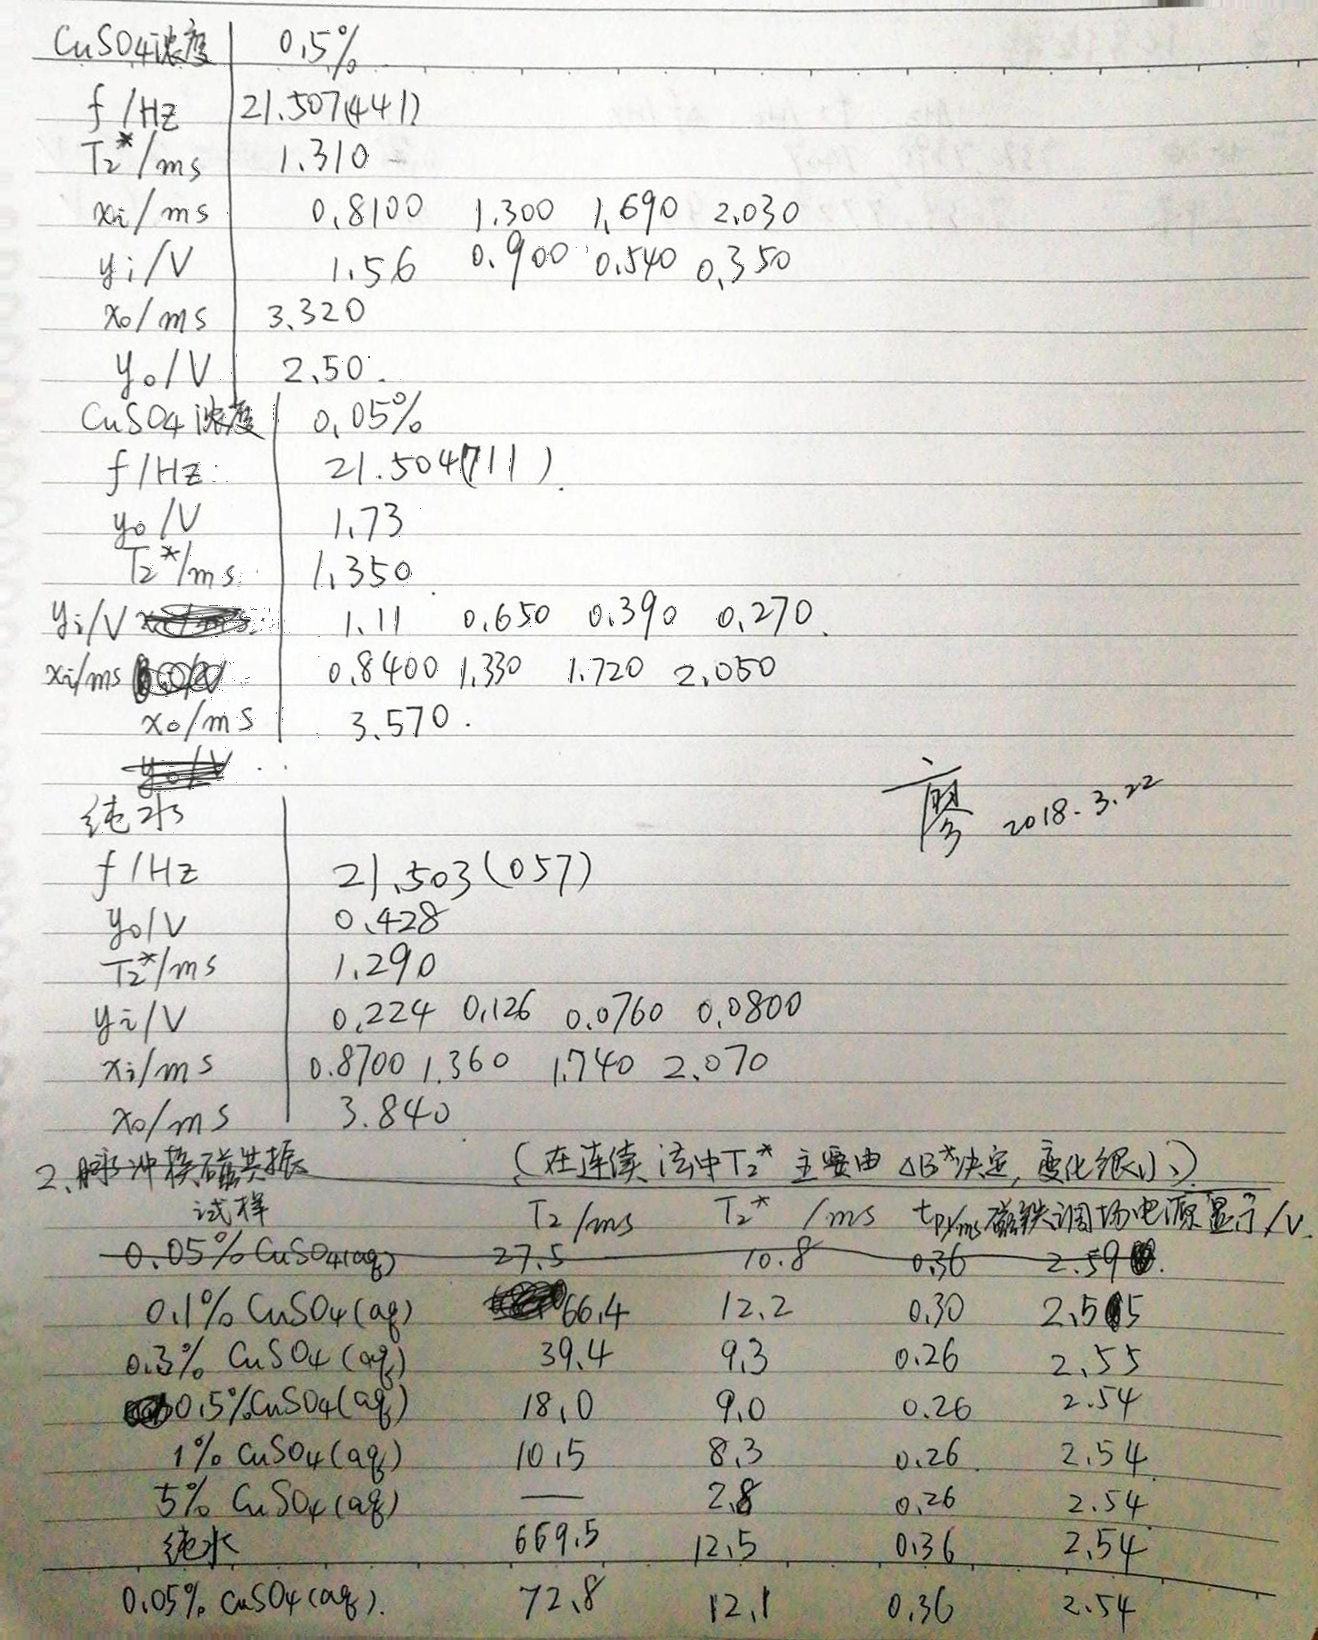 CuSO4浓度 0.5%
f/Hz 21.507(441)
T2*/ms 1.310
xi/ms 0.8100 1.300 1.690 2.030
yi/V 1.56 0.900 0.540 0.350
x0/ms 3.320
y0/V 2.50
CuSO4浓度 0.05%
f/Hz 21.504(711)
y0/V 1.73
T2*/ms 1.350
yi/V 1.11 0.650 0.390 0.270
xi/ms 0.8400 1.330 1.720 2.050
x0/ms 3.570
y0/V
廖 2018.3.22
纯水
f/Hz 21.503(057)
y0/V 0.428
T2*/ms 1.290
yi/V 0.224 0.126 0.0760 0.0800
xi/ms 0.8700 1.360 1.740 2.070
x0/ms 3.840
2、脉冲核磁共振 (在连续法中T2*主要由ΔB*决定,变化很小)
试样 T2/ms T2*/ms tp/ms 磁铁调场电源显示/V
0.05% CuSO4(aq) 27.5 10.8 0.36 2.59
0.1% CuSO4(aq) 66.4 12.2 0.30 2.55
0.3% CuSO4(aq) 39.4 9.3 0.26 2.55
0.5% CuSO4(aq) 18.0 9.0 0.26 2.54
1% CuSO4(aq) 10.5 8.3 0.26 2.54
5% CuSO4(aq) — 2.8 0.26 2.54
纯水 669.5 12.5 0.36 2.54
0.05% CuSO4(aq). 72.8 12.1 0.36 2.54